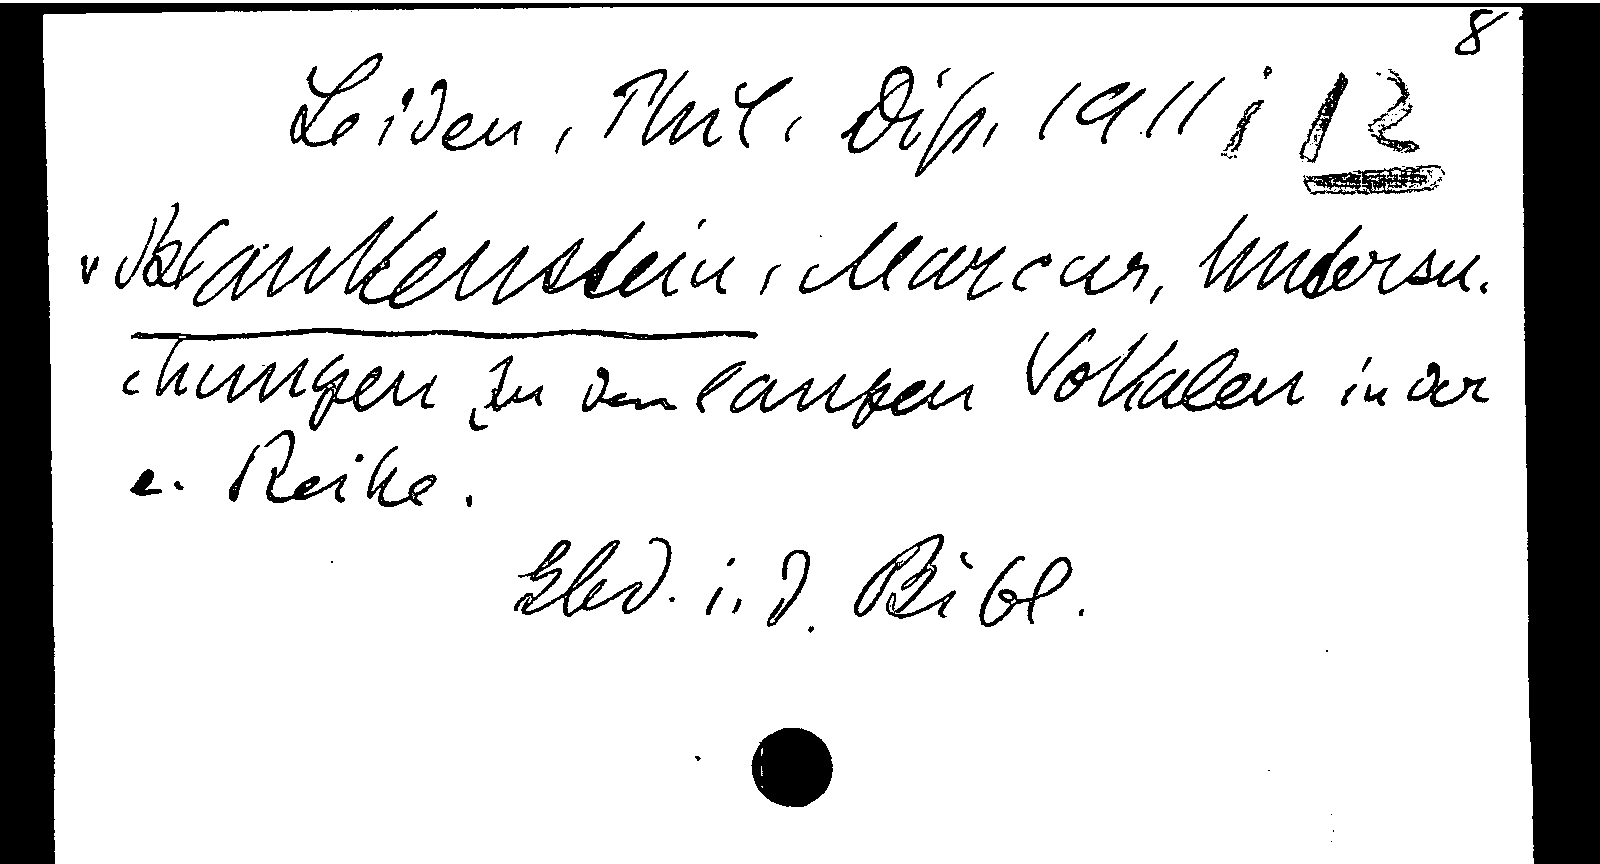 8
Leiden, Phil. Diss. 1911; 12
Blankenstein, Marcus, Untersu-
chungen zu den langen Vokalen in der
e. Reihe.
i. d. Bibl.